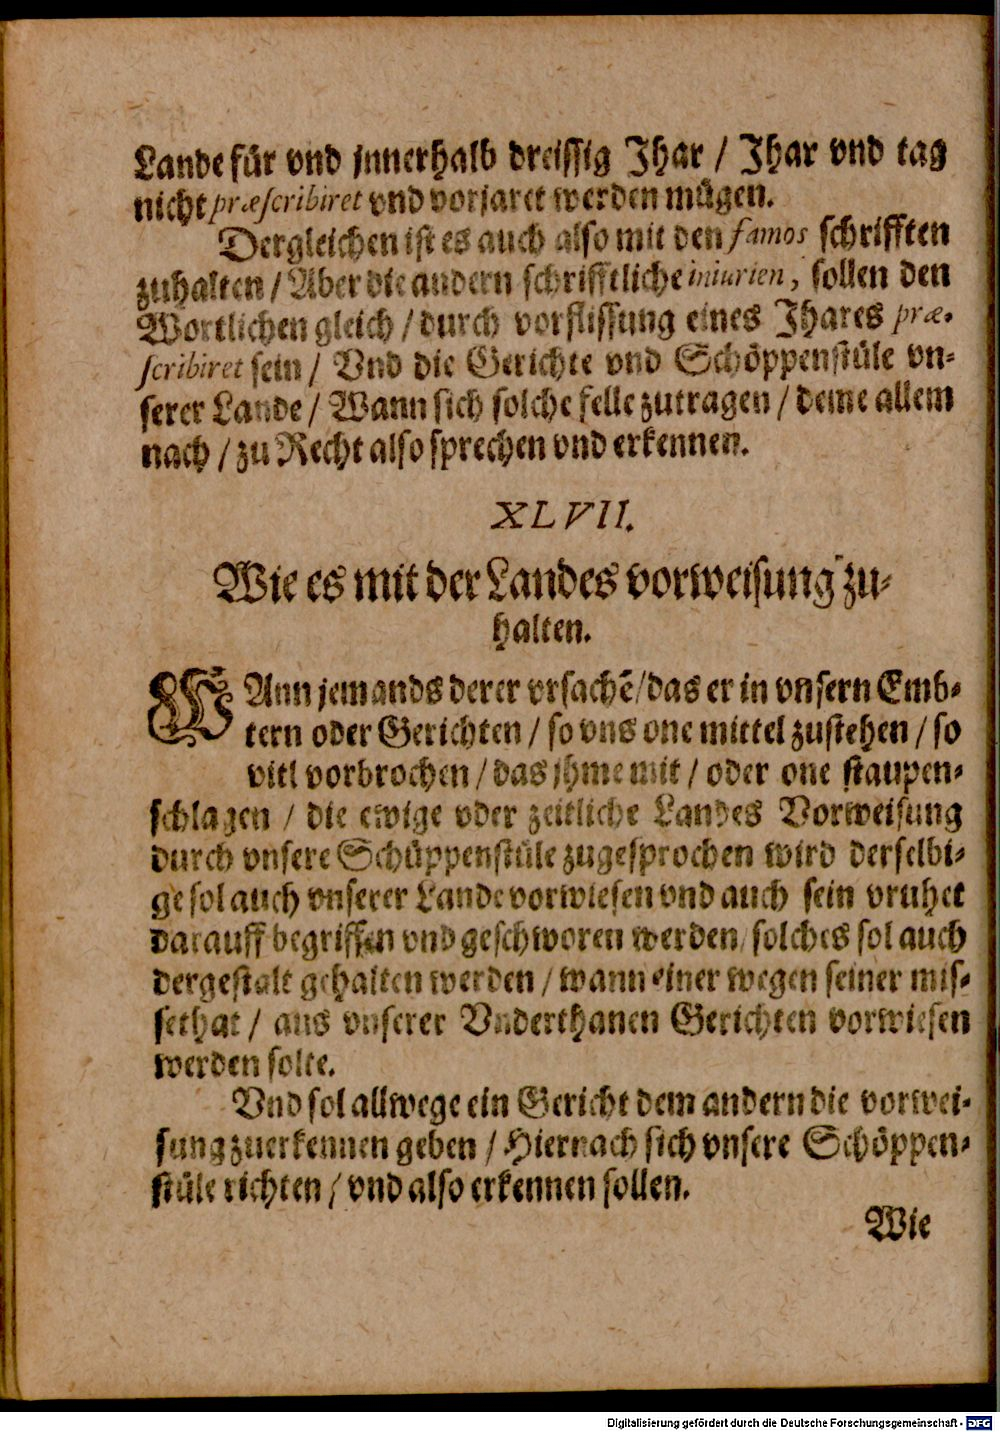 Lande für vnd jnnerhalb dreissig Jhar / Jhar vnd tag
nicht præscribiret vnd vorjaret werden mügen.
Dergleichen ist es auch also mit den famos schrifften
zuhalten / Aber die andern schrifftliche iniurien, sollen den
Wortlichen gleich / durch vorflissung eines Jhares præ-
scribiret sein / Vnd die Gerichte vnd Schöppenstüle vn-
serer Lande / Wann sich solche felle zutragen / deme allem
nach / zu Recht also sprechen vnd erkennen.
XLVII.
Wie es mit der Landes vorweisung zu-
halten.
WAnn jemands derer vrsachẽ / das er in vnsern Emb-
tern oder Gerichten / so vns one mittel zustehen / so
vitl vorbrochen / das jhme mit / oder one staupen-
schlagen / die ewige oder zeitliche Landes Vorweisung
durch vnsere Schüppenstüle zugesprochen wird derselbi-
ge sol auch vnserer Lande vorwiesen vnd auch sein vruhet
darauff begriffen vnd geschworen werden / solches sol auch
dergestalt gehalten werden / wann einer wegen seiner mis-
sethat / aus vnserer Vnderthanen Gerichten vorwiesen
werden solte.
Vnd sol allwege ein Gericht dem andern die vorwei-
sung zuerkennen geben / Hiernach sich vnsere Schöppen-
stüle richten / vnd also erkennen sollen.
Wie
Digitalisierung gefördert durch die Deutsche Forschungsgemeinschaft - DFG